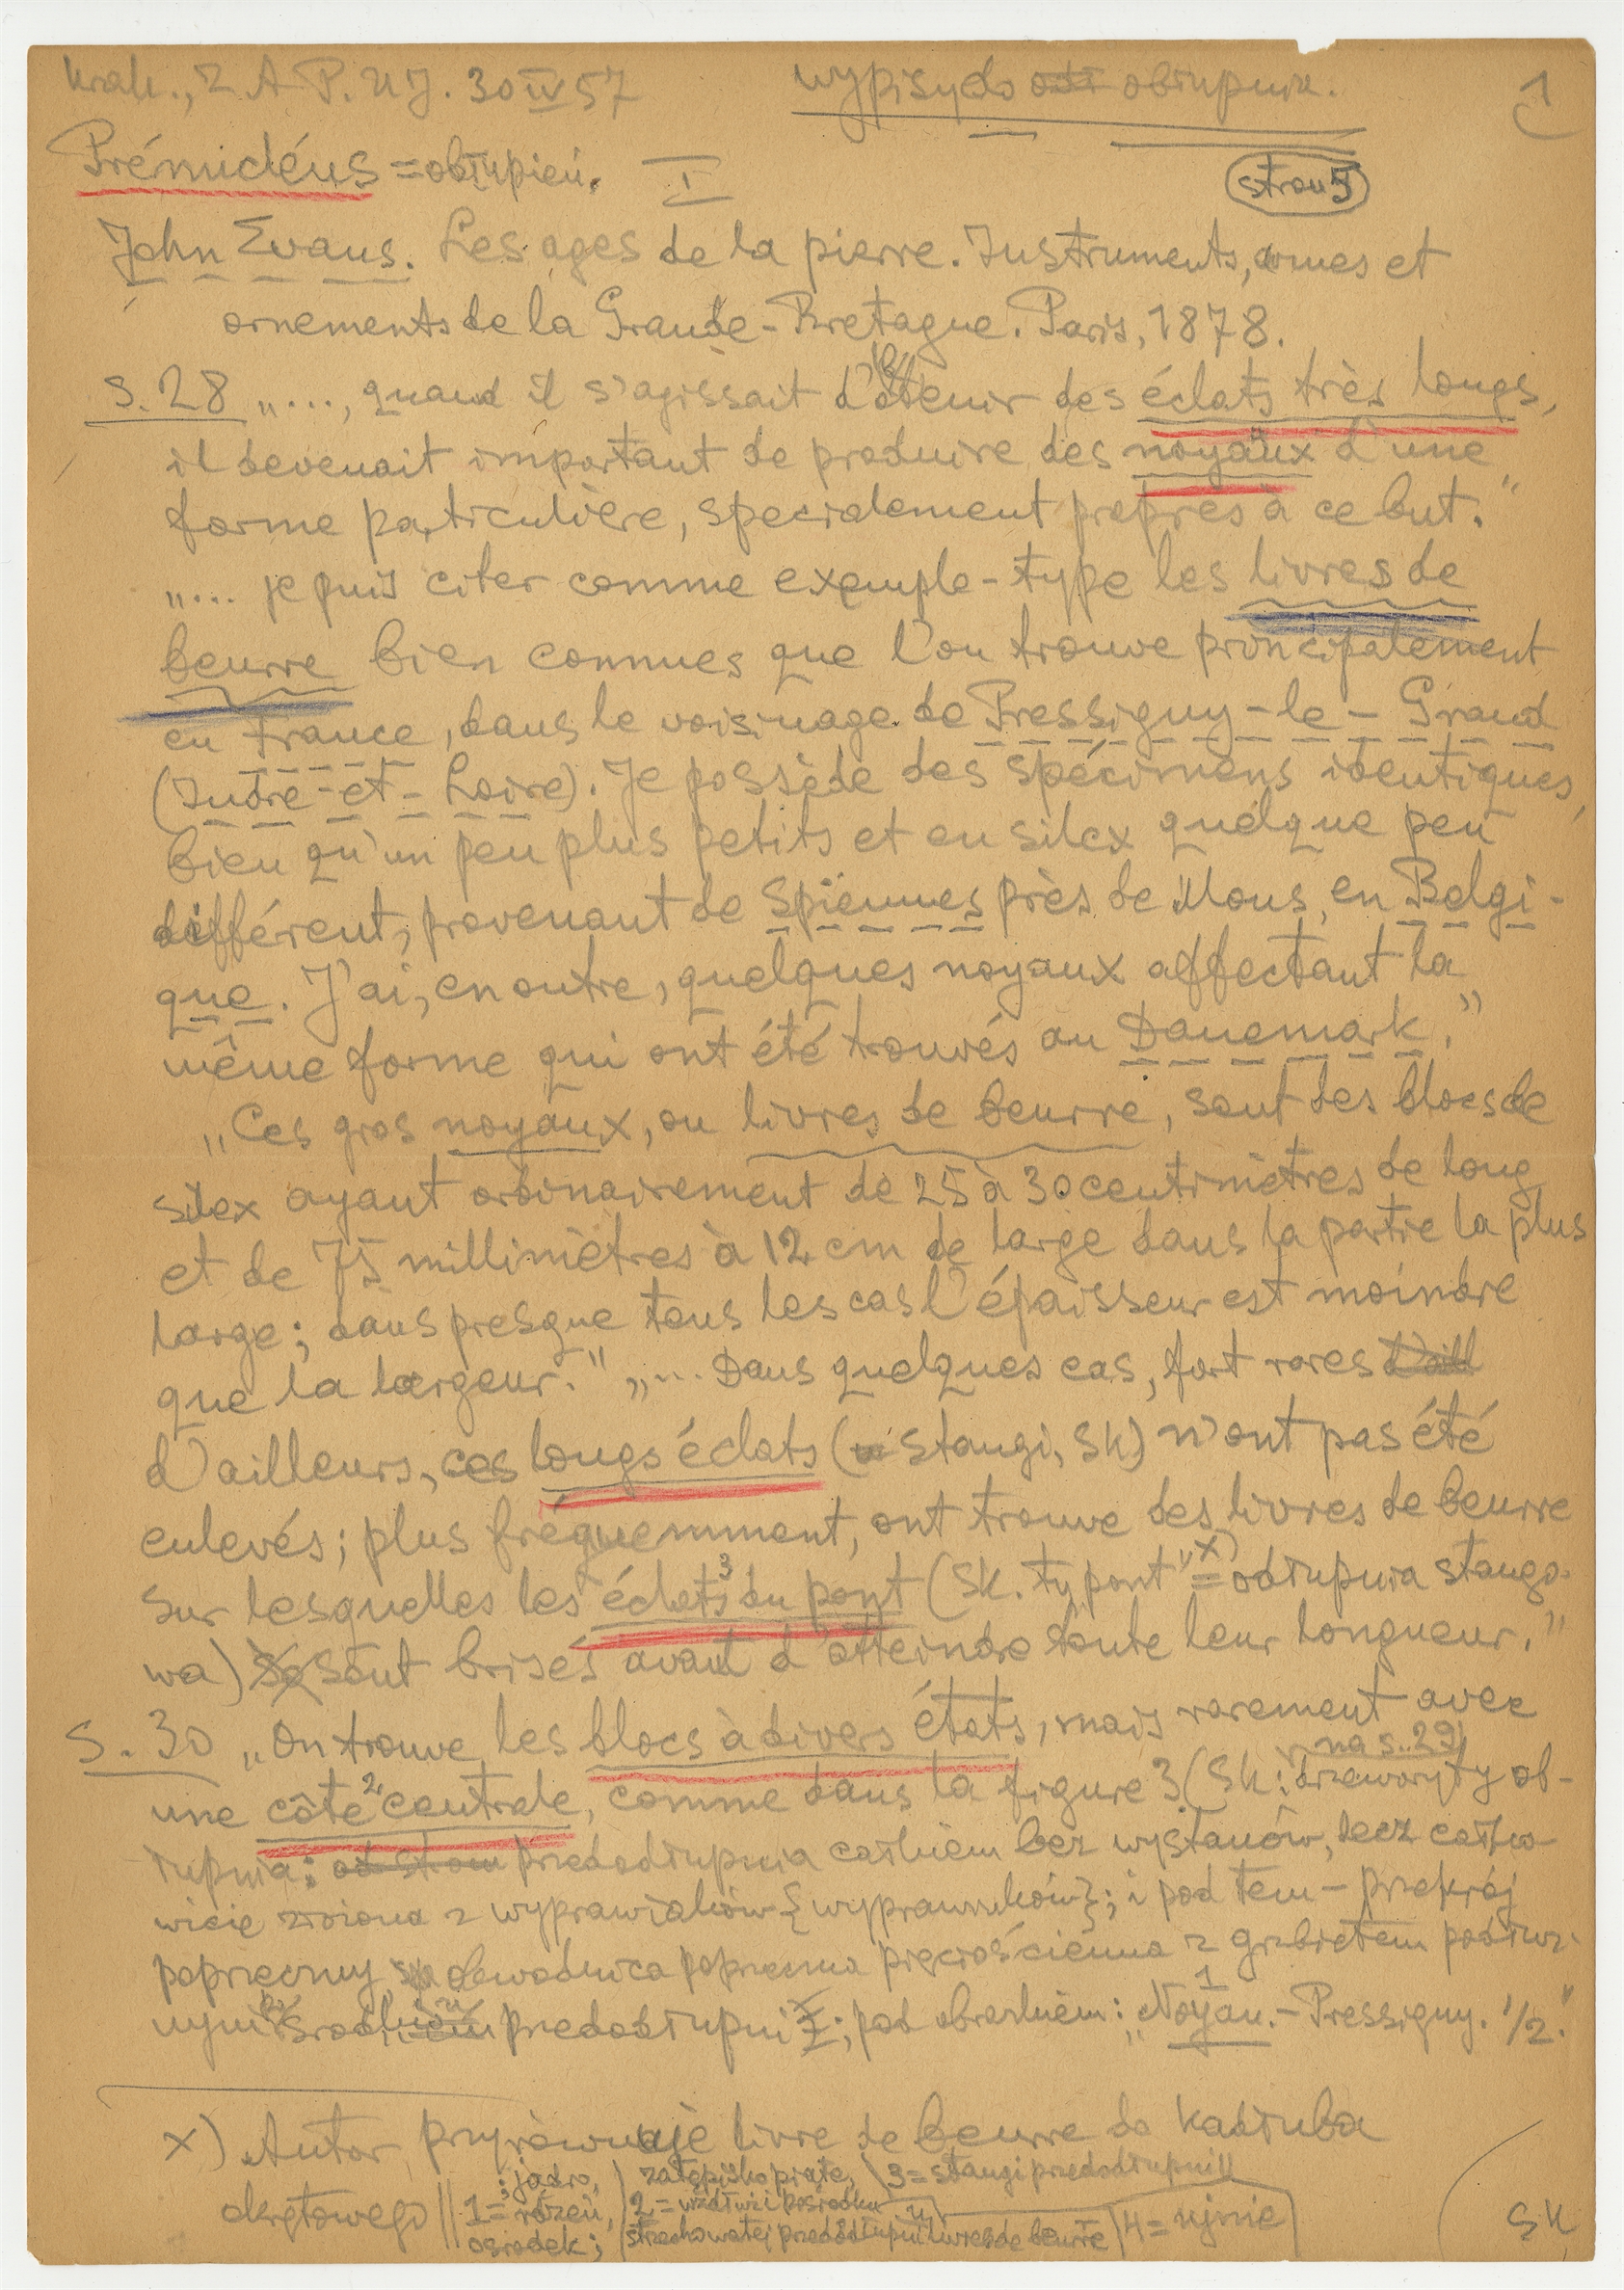 Krak., Z A P. UJ. 30 IV 57 wypisy do obłupnik. 1
Prémicléus = obłupień. I stron 5
John Evans. Les ages de la pierre. Instruments, armes et
ornements de la Grande-Bretagne. Paris, 1878.
S. 28 „..., quand il s'agissait d'obtenir des éclats très longs,
il devenait important de produire des noyaux d'une
forme particulière, specialement propres à ce but."
„... je puis citer comme exemple-type les livres de
beurre bien connues que l'on trouve principalement
en France, dans le voisinage de Pressigny-le-Grand
(Indre-et-Loire). Je possède des spécimens identiques,
bien qu'un peu plus petits et en silex quelque peu
différent, provenant de Spiennes près de Mons, en Belgi-
que. J'ai, en outre, quelques noyaux affectant la
même forme qui ont été trouvés au Danemark."
„Ces gros noyaux, ou livres de beurre, sont des blocs de
silex ayant ordinairement de 25 à 30 centimètres de long
et de 75 millimètres à 12 cm de large dans la partie la plus
large; dans presque tous les cas l'épaisseur est moindre
que la largeur." „... Dans quelques cas, fort rares
d'ailleurs, ces longs éclats (stangi, SK) n'ont pas été
enlevés; plus fréquemment, ont trouve des livres de beurre
sur lesquelles les éclats 3 du pont (SK. ty pont" x) = odłupnia stango-
wa) sont brisés avant d'atteindre toute leur longueur."
S. 30 „On trouve les blocs à divers états, mais rarement avec
une côte 2 centrale, comme dans la figure 3 (SK: na s. 29 drzeworyty ob-
łupnia: przedodłupnia całkiem bez wystanów, lecz całko-
wicie z wyprawiaków {wyprawników}; i pod tem - przekrój
poprzeczny, obwodnica poprzeczna pięciościenna z grzbietem podłuż-
nym przedodłupni; pod obrazkiem: „Noyau 1. - Pressigny. 1/2."
x) Autor przyrównuje livre de beurre do kadłuba
okrętowego || 1 = jądro, rdzeń, ośrodek; 2 = wzdłuż i pośrodku strzechowatej przedodłupni livres de beurre 3 = stangi przedodłupni 4 = ujmie
SK